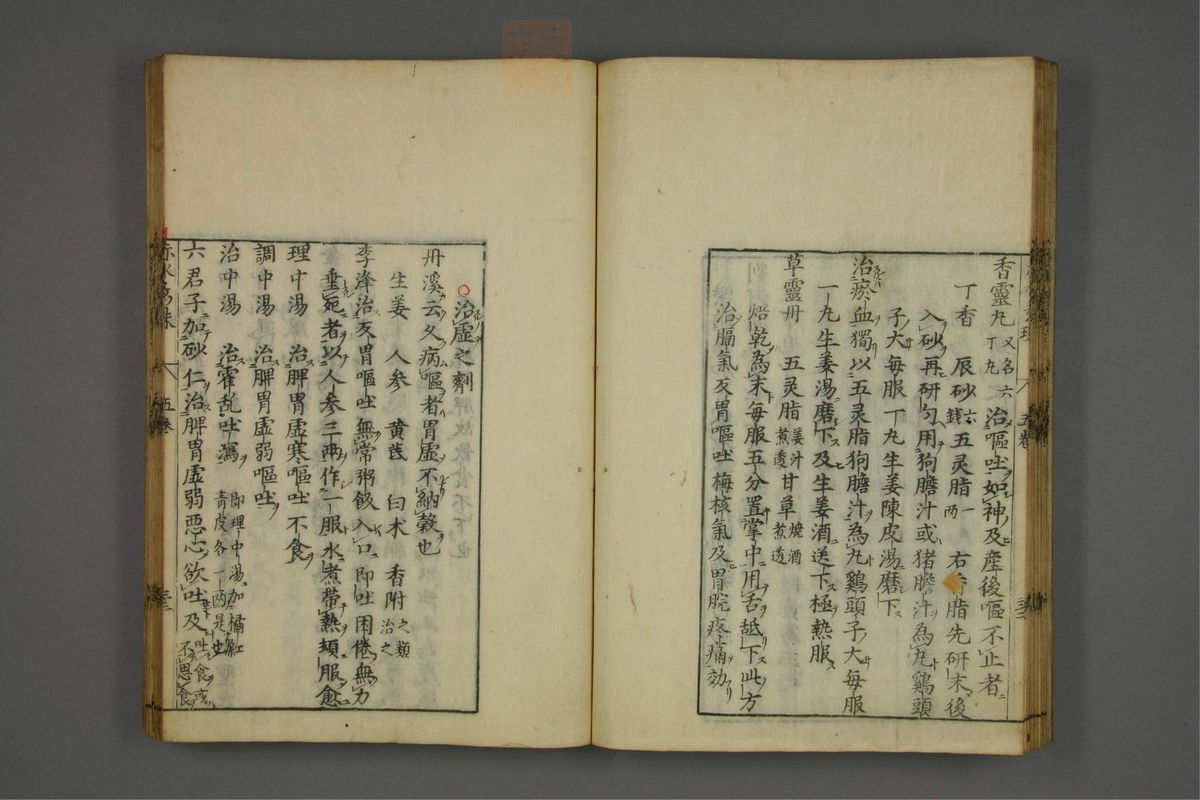 香靈丸 又名六丁丸 治嘔吐如神及産後嘔不止者
丁香 辰砂 六錢 五灵脂 一両 右 脂先研末後
入砂再研匀用狗膽汁或猪膽汁為丸鷄頭
子大每服丁丸生姜陳皮湯磨下
治瘀血獨以五灵脂狗膽汁為丸鷄頭子大每服
一丸生姜湯磨下及生姜酒送下極熱服
草靈丹 五灵脂 姜汁煮透 甘草 燒酒煮透
焙乾為末每服五分置掌中用舌䑛下此方
治膈氣反胃嘔吐梅核氣及胃脘疼痛効
治虛之劑
丹溪云久病嘔者胃虛不納穀也
生姜 人參 黄茋 白朮 香附 之類治之
李絳治反胃嘔吐無常粥飲入口即吐困倦無力
垂死者以人參三兩作一服水煮帶熱頓服愈
理中湯 治脾胃虛寒嘔吐不食
調中湯 治脾胃虛弱嘔吐
治中湯 治霍乱吐瀉 即理中湯加橘紅青皮各一両是也
六君子加砂仁治脾胃虛弱惡心欲吐及 吐食或不思食